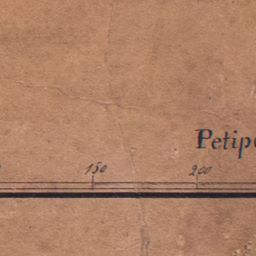 Petip
150 200